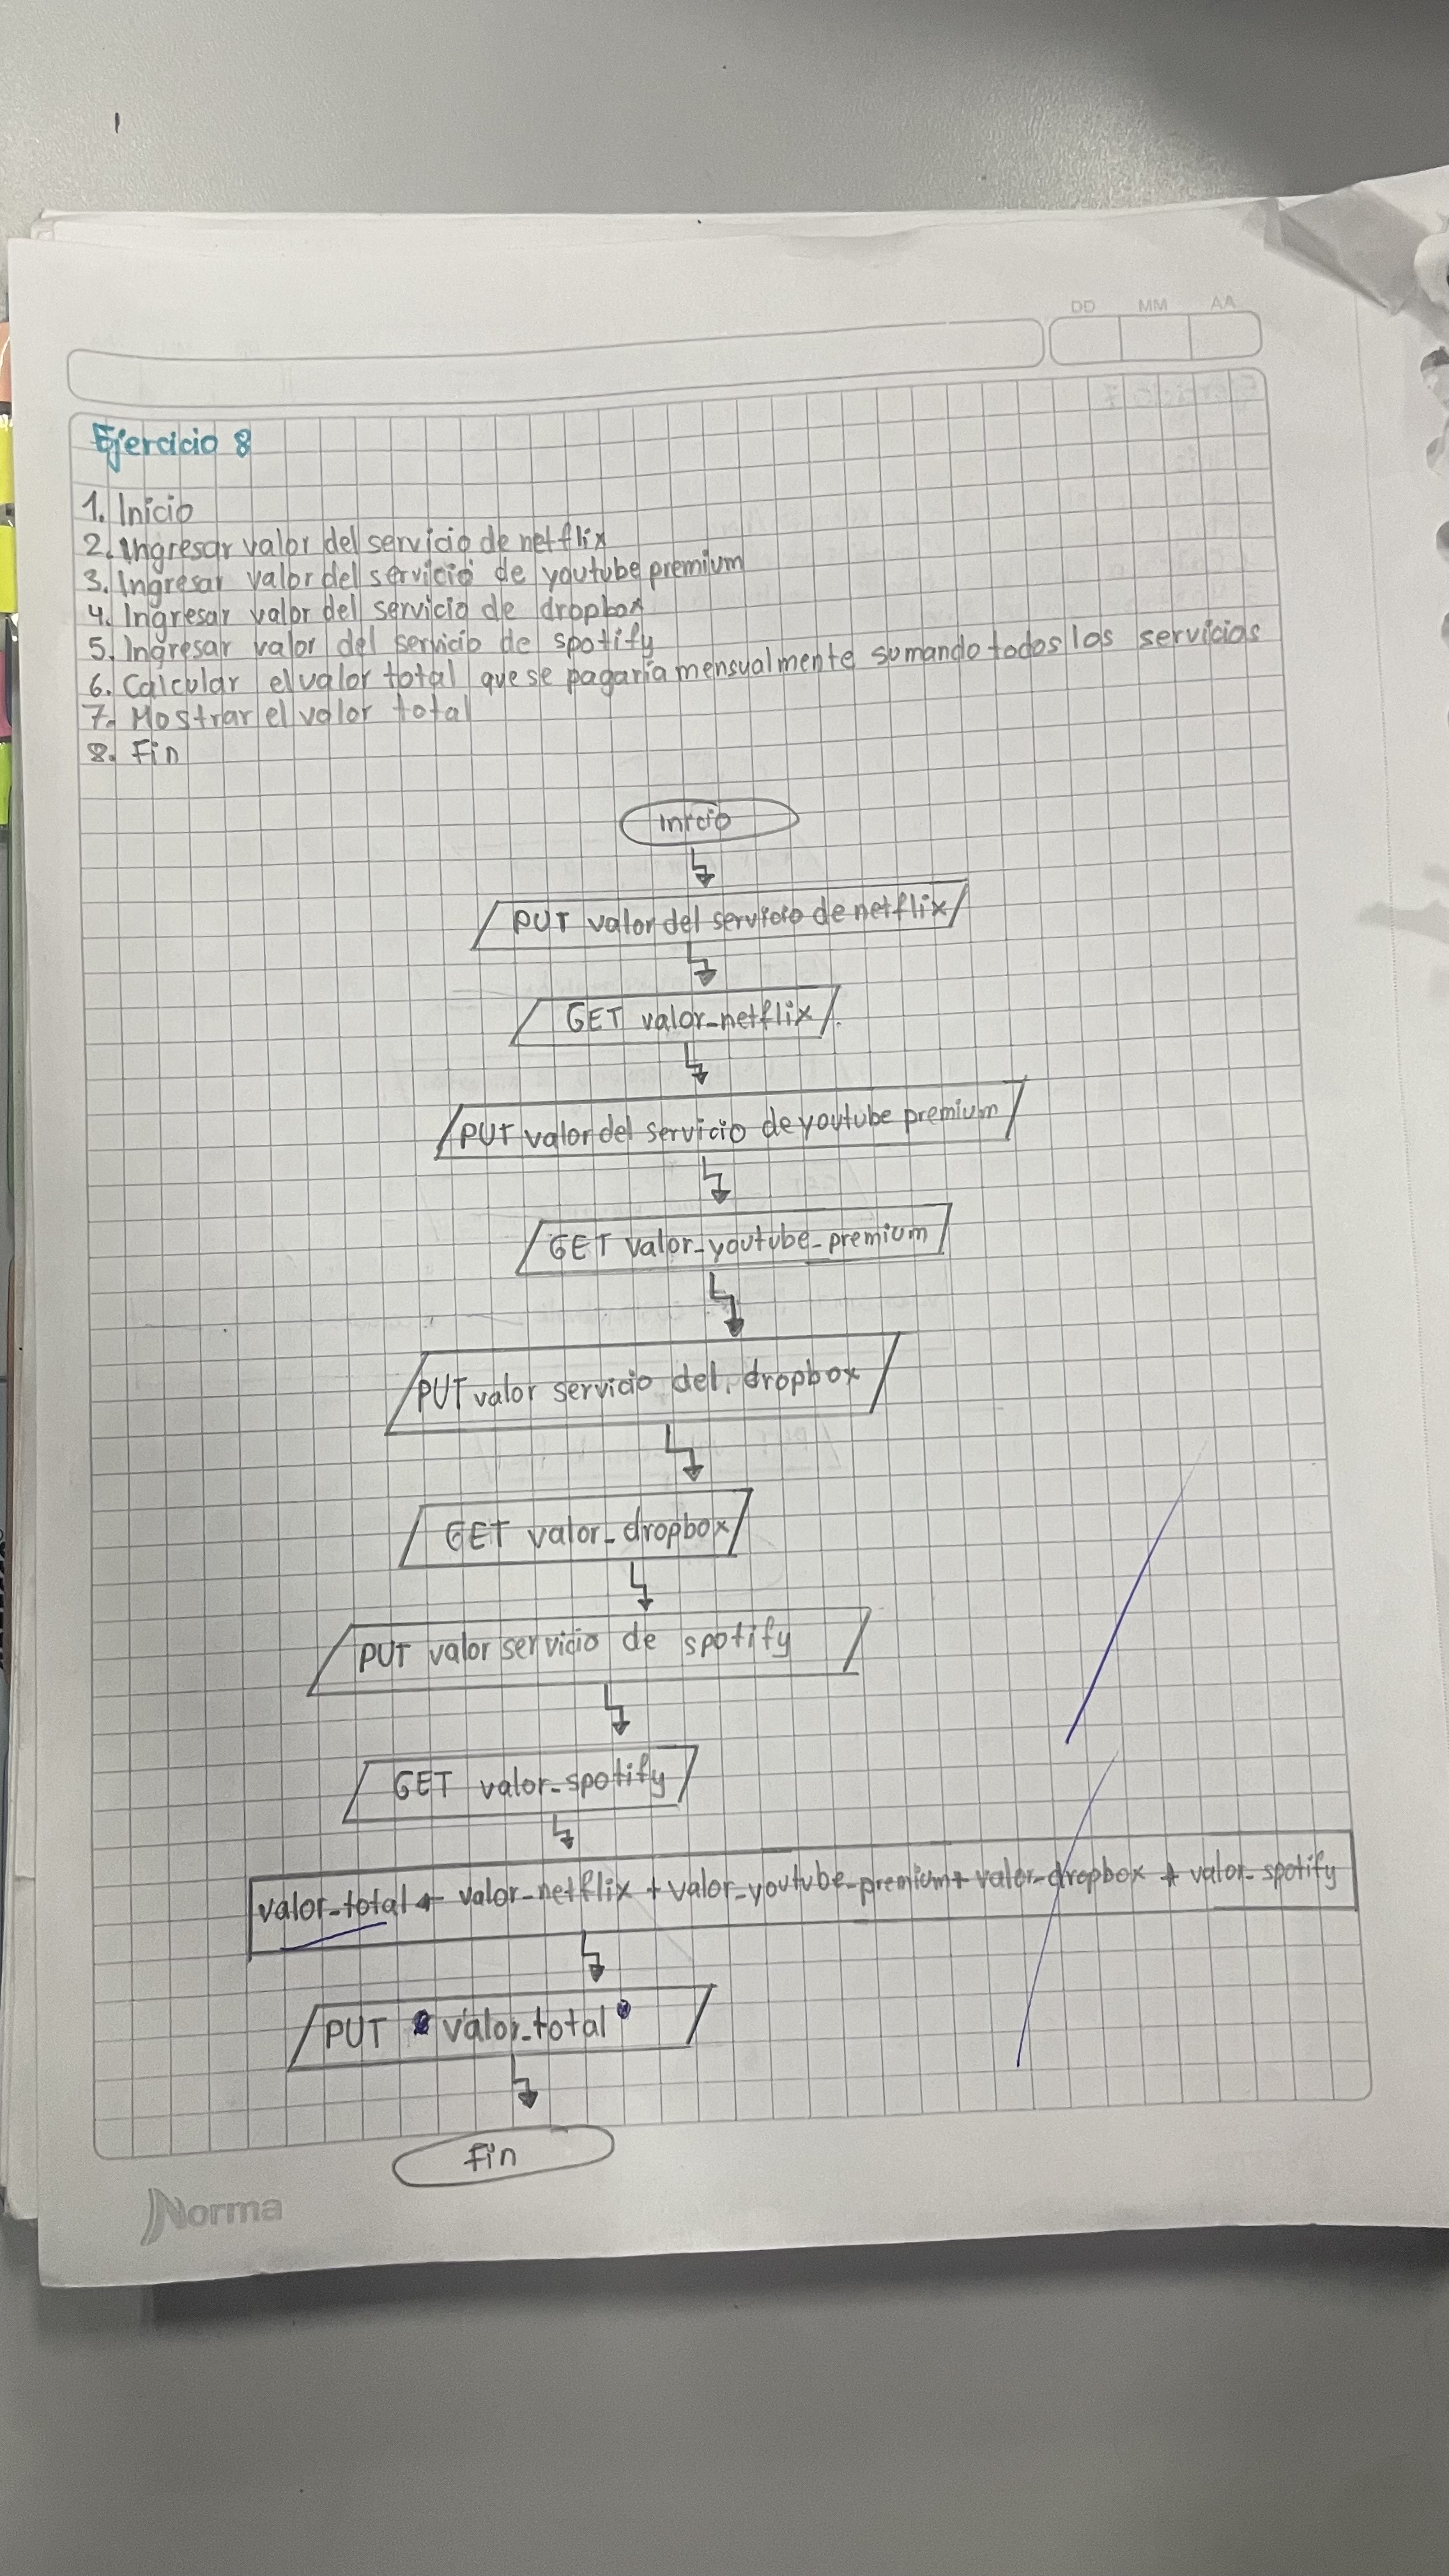 DD MM AA
Ejercicio 8
1. Inicio
2. Ingresar valor del servicio de netflix
3. Ingresar valor del servicio de youtube premium
4. Ingresar valor del servicio de dropbox
5. Ingresar valor del servicio de spotify
6. Calcular el valor total que se pagaría mensualmente sumando todos los servicios
7. Mostrar el valor total
8. Fin
inicio
PUT valor del servicio de netflix
GET valor_netflix
PUT valor del servicio de youtube premium
GET valor_youtube_premium
PUT valor servicio del dropbox
GET valor_dropbox
PUT valor servicio de spotify
GET valor_spotify
valor_total ← valor_netflix + valor_youtube_premium + valor_dropbox + valor_spotify
PUT valor_total
fin
Norma